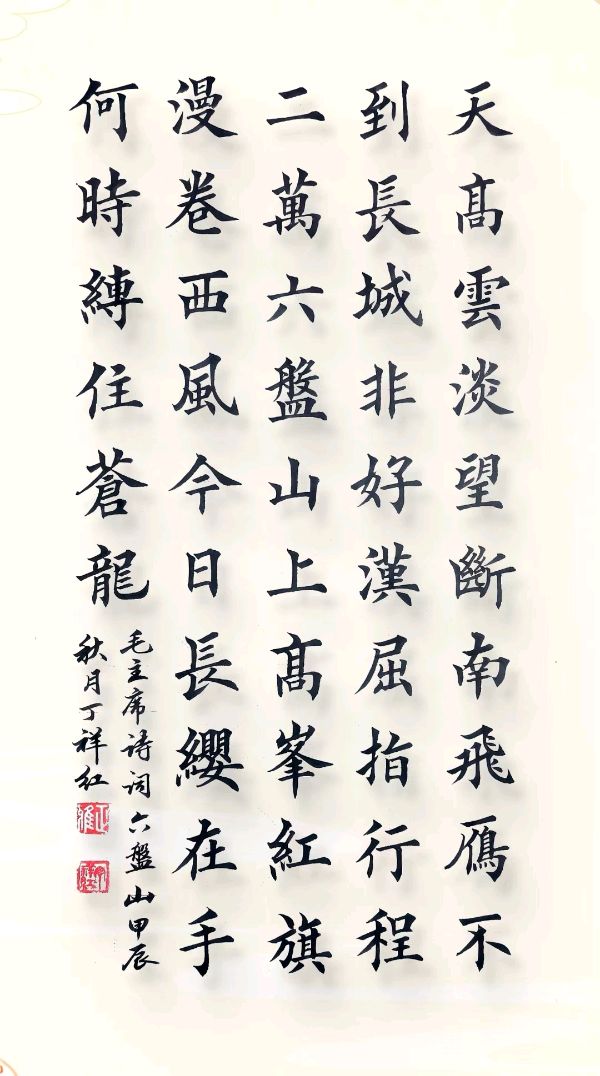 天髙雲淡望斷南飛鴈不
到長城非好漢屈指行程
二萬六盤山上髙峯紅旗
漫卷西風今日長纓在手
何時縛住蒼龍
毛主席诗词六盤山甲辰
秋月丁祥红